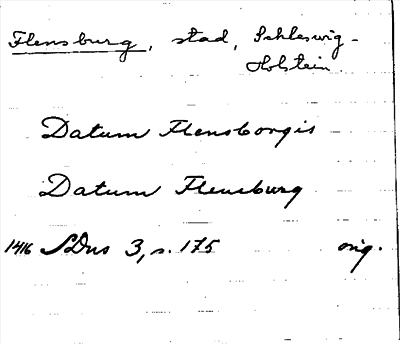 Flensburg, stad, Schleswig-
Holstein.
Datum Flensborgis
Datum Flensburg
1416 SDns 3, s. 175 orig.